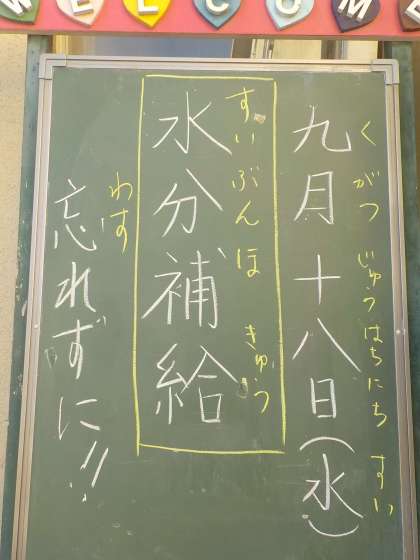 WELCOME
九月十八日(水)
くがつじゅうはちにちすい
水分補給
すいぶんほきゅう
忘れずに!!
わす